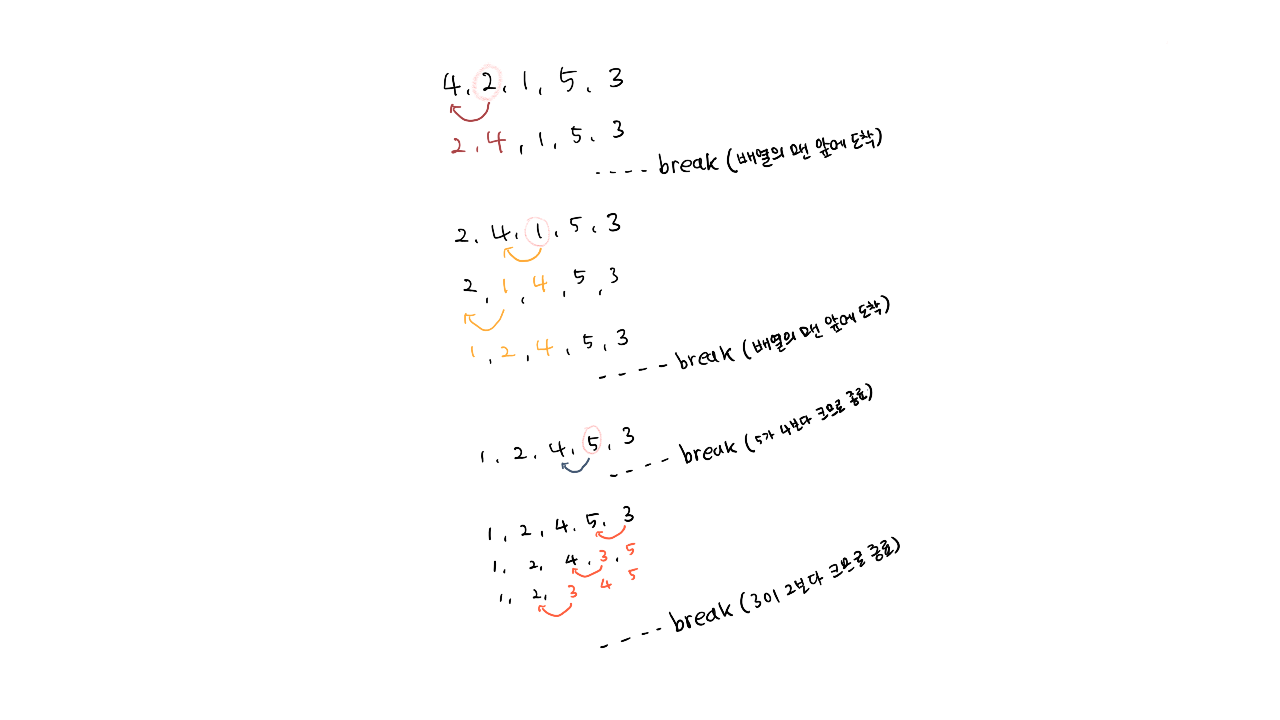 4, 2, 1, 5, 3
2, 4, 1, 5, 3
---- break (배열의 맨 앞에 도착)
2, 4, 1, 5, 3
2, 1, 4, 5, 3
1, 2, 4, 5, 3
---- break (배열의 맨 앞에 도착)
1, 2, 4, 5, 3
---- break (5가 4보다 크므로 종료)
1, 2, 4, 5, 3
1, 2, 4, 3, 5
1, 2, 3 4 5
---- break (3이 2보다 크므로 종료)